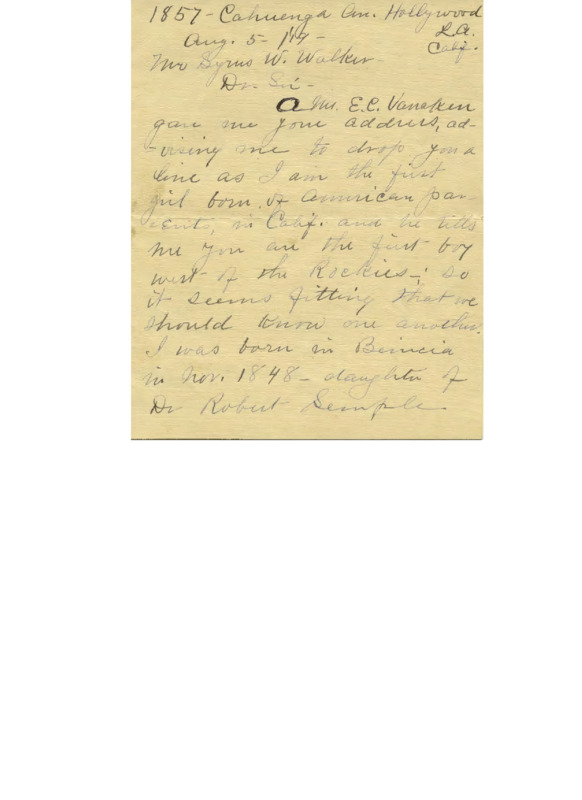 1857 - Cahuenga Av. Hollywood
L.A.
Calif.
Aug. 5 -
Mr Syrus W. Walker -
Dr. Sir -
A Mr. E.C. Vanaken
gave me your address, ad-
-vising me to drop you a
line as I am the first
girl born of American par-
-ents, in Calif. and he tells
me you are the first boy
west of the Rockies -; so
it seems fitting that we
should know one another.
I was born in Benicia
in Nov. 1848 - daughter of
Dr Robert Semple -